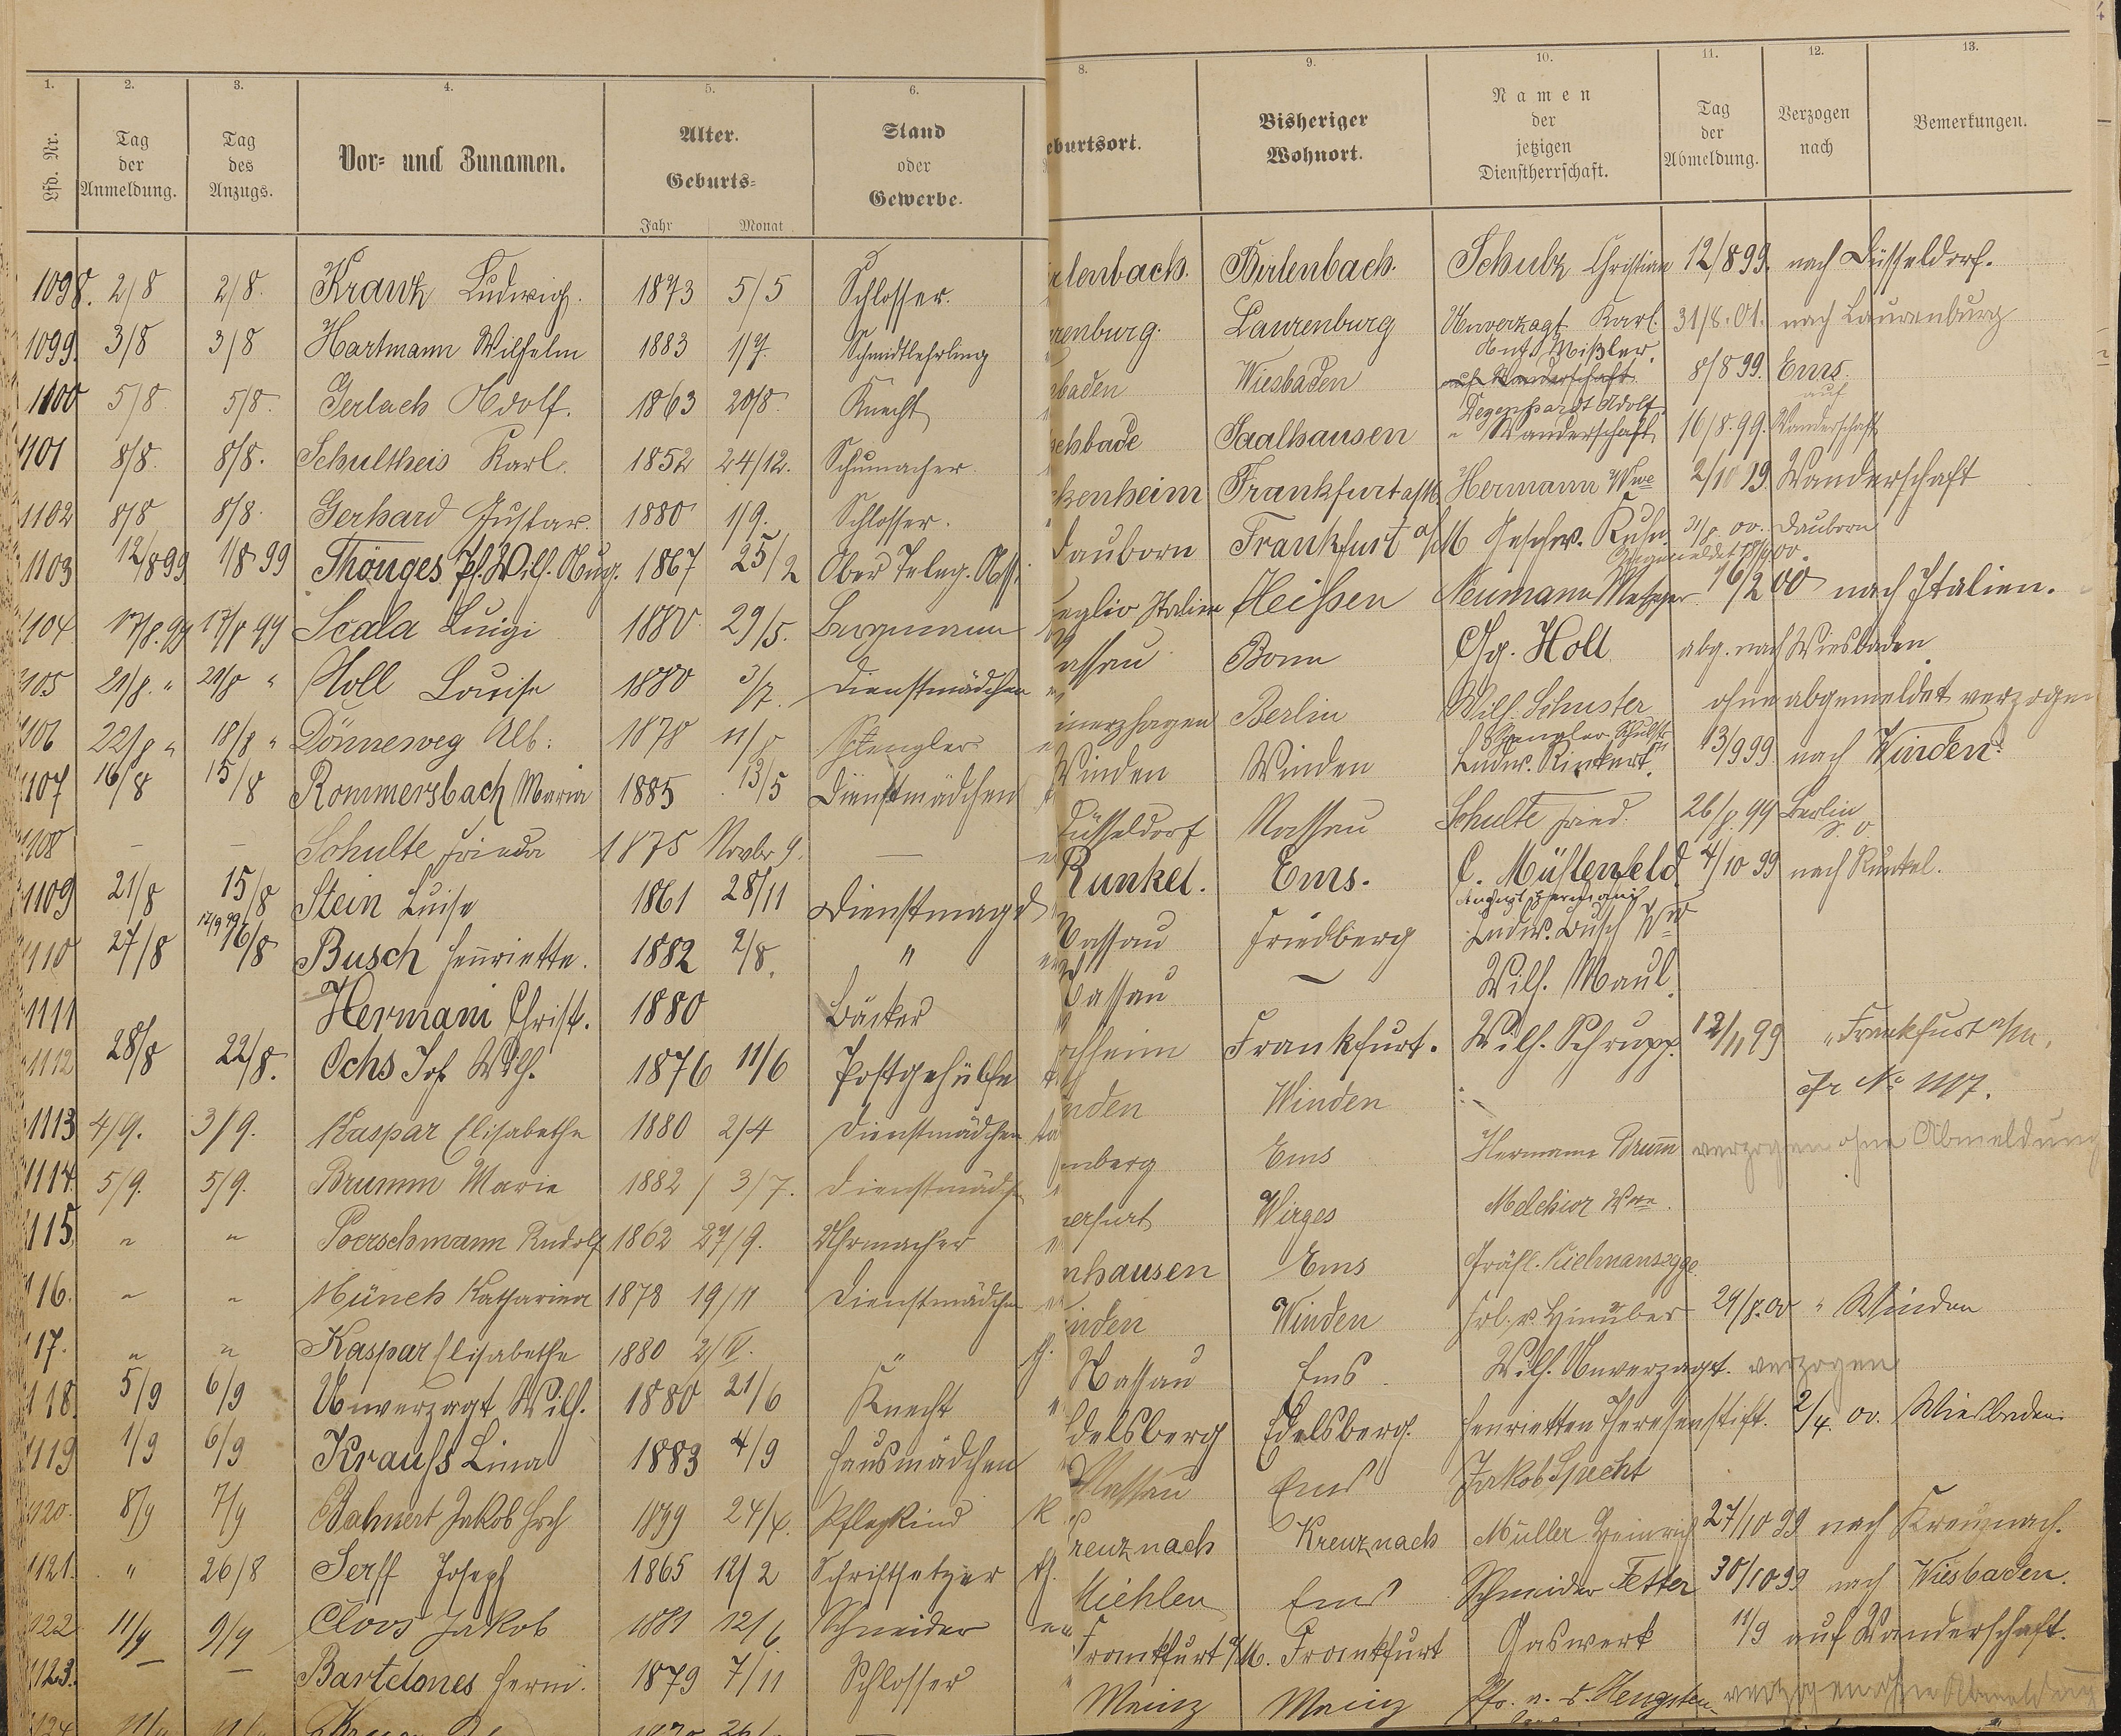 1. 2. 3. 4. 5. 6. 8. 9. 10. 11. 12. 13.
Lfd. Nr. Tag der Anmeldung. Tag des Anzugs. Vor- und Zunamen. Alter. Geburts- Jahr Monat Stand oder Gewerbe. eburtsort. Bisheriger Wohnort. Namen der jetzigen Dienstherrschaft. Tag der Abmeldung. Verzogen nach Bemerkungen.
1098. 2/8 2/8. Krantz Ludwig. 1873 5/5 Schlosser. rlenbach. Birlenbach. Schulz Christian 12/8 99. nach Düsseldorf.
1099. 3/8 3/8 Hartmann Wilhelm 1883 1/7. Schmidtlehrling renburg. Laurenburg Unverzagt Karl. 31/8.01. nach Laurenburg
1100 5/8 5/8. Gerlach Adolf. 1863 20/8. Knecht baden Wiesbaden auf Wanderschaft 8/8 99. Ems.
1101 8/8. 8/8. Schultheis Karl. 1852 24/12. Schumacher. Saalhausen Degenhardt Adolf. " Wanderschaft 16/8.99. auf Wanderschaft
1102 8/8 8/8. Gerhard Gustav. 1880 1/9. Schlosser. kenheim Frankfurt a/M. Hermann Wwe 2/10 99. Wanderschaft
1103 12/8 99 1/8 99 Thönges Ph. Wilh. Aug. 1867 25/2 Ober Teleg. Ass. Dauborn Frankfurt a/M Geschw. Kuhn. 31/8. 00. Dauborn
1104 17/8.99 17/8 99 Scala Luigi 1880 29/5. Bergmann eglio Italien Heißen Neumann Metzger 16/2 00 nach Italien.
1105 21/8. " 21/8 " Holl Louise 1880 3/7. Dienstmädchen Nassau Bonn Chg. Holl abg. nach Wiesbaden
1106 22/8 " 18/8 " Dönneweg Alb. 1878 11/8 Spengler inerzhagen Berlin Wilh. Schuster ohne abgemeldet verzogen
1107 16/8 15/8 Rommersbach Maria 1885 13/5 Dienstmädchen Winden Winden Ludw. Rinkert. 13/9 99 nach Winden.
1108 — — Schulte Frieda 1875 Novbr 9. — Düsseldorf Nassau Schulte Fried. 26/8.99 Berlin
1109 21/8 15/8 Stein Luise 1861 28/11 Dienstmagd Runkel. Ems. C. Mühlenfeld. 4/10 99 nach Runkel.
1110 27/8 16/8 Busch Henriette. 1882 2/8. " Nassau Friedberg Ludw. Busch Ww
1111 Hermani Christ. 1880 Bäcker Nassau — Wilh. Maul.
1112 28/8 22/8. Ochs Jos. Wilh. 1876 11/6 Postgehülfe chheim Frankfurt. Wilh. Schrupp. 12/11 99 " Frankfurt a/m.
1113 4/9. 3/9. Kaspar Elisabethe 1880 2/4 Dienstmädchen nden Winden fr No 1117.
1114. 5/9. 5/9. Brumm Marie 1882 3/7. Dienstmädch nberg Ems Hermann Brumm verzogen ohne Abmeldung
1115 " " Poerschmann Rudolf 1862 27/9. Uhrmacher erfurt Wirges Melchior Wwe.
1116. " " Münch Katharina 1878 19/11 Dienstmädchen nhausen Ems Gräfl. Kielmansegge.
1117. " " Kaspar Elisabethe 1880 2/IV. " inden Winden Frl. v. Hinüber 24/8.00 " Winden
1118. 5/9 6/9 Unverzagt Wilh. 1880 21/6 Knecht Nassau Ems. Wilh. Unverzagt. verzogen
1119 1/9 6/9 Krauß Lina 1883 4/9 Hausmädchen delsberg Edelsberg. Henrietten Theresenstift. 2/4. 00. Wiesbaden.
1120. 8/9 7/9 Jakob Hch 1899 24/4. Pflegkind Nassau Ems Jakob Specht
1121. " 26/8 Serff Joseph 1865 12/2 Schriftsetzer reuznach Kreuznach Müller Heinrich 27/10 99 nach Kreuznach.
1122 11/9 9/9 Cloos Jakob 1881 12/6 Schneider Miehlen Ems Schneider Fetter 30/10 99 nach Wiesbaden.
1123. — — Bartelones Herm. 1879 7/11 Schlosser Frankfurt a/M. Frankfurt Gaswerk 11/9 auf Wanderschaft.
Mainz Mainz verzogen ohne Abmeldung